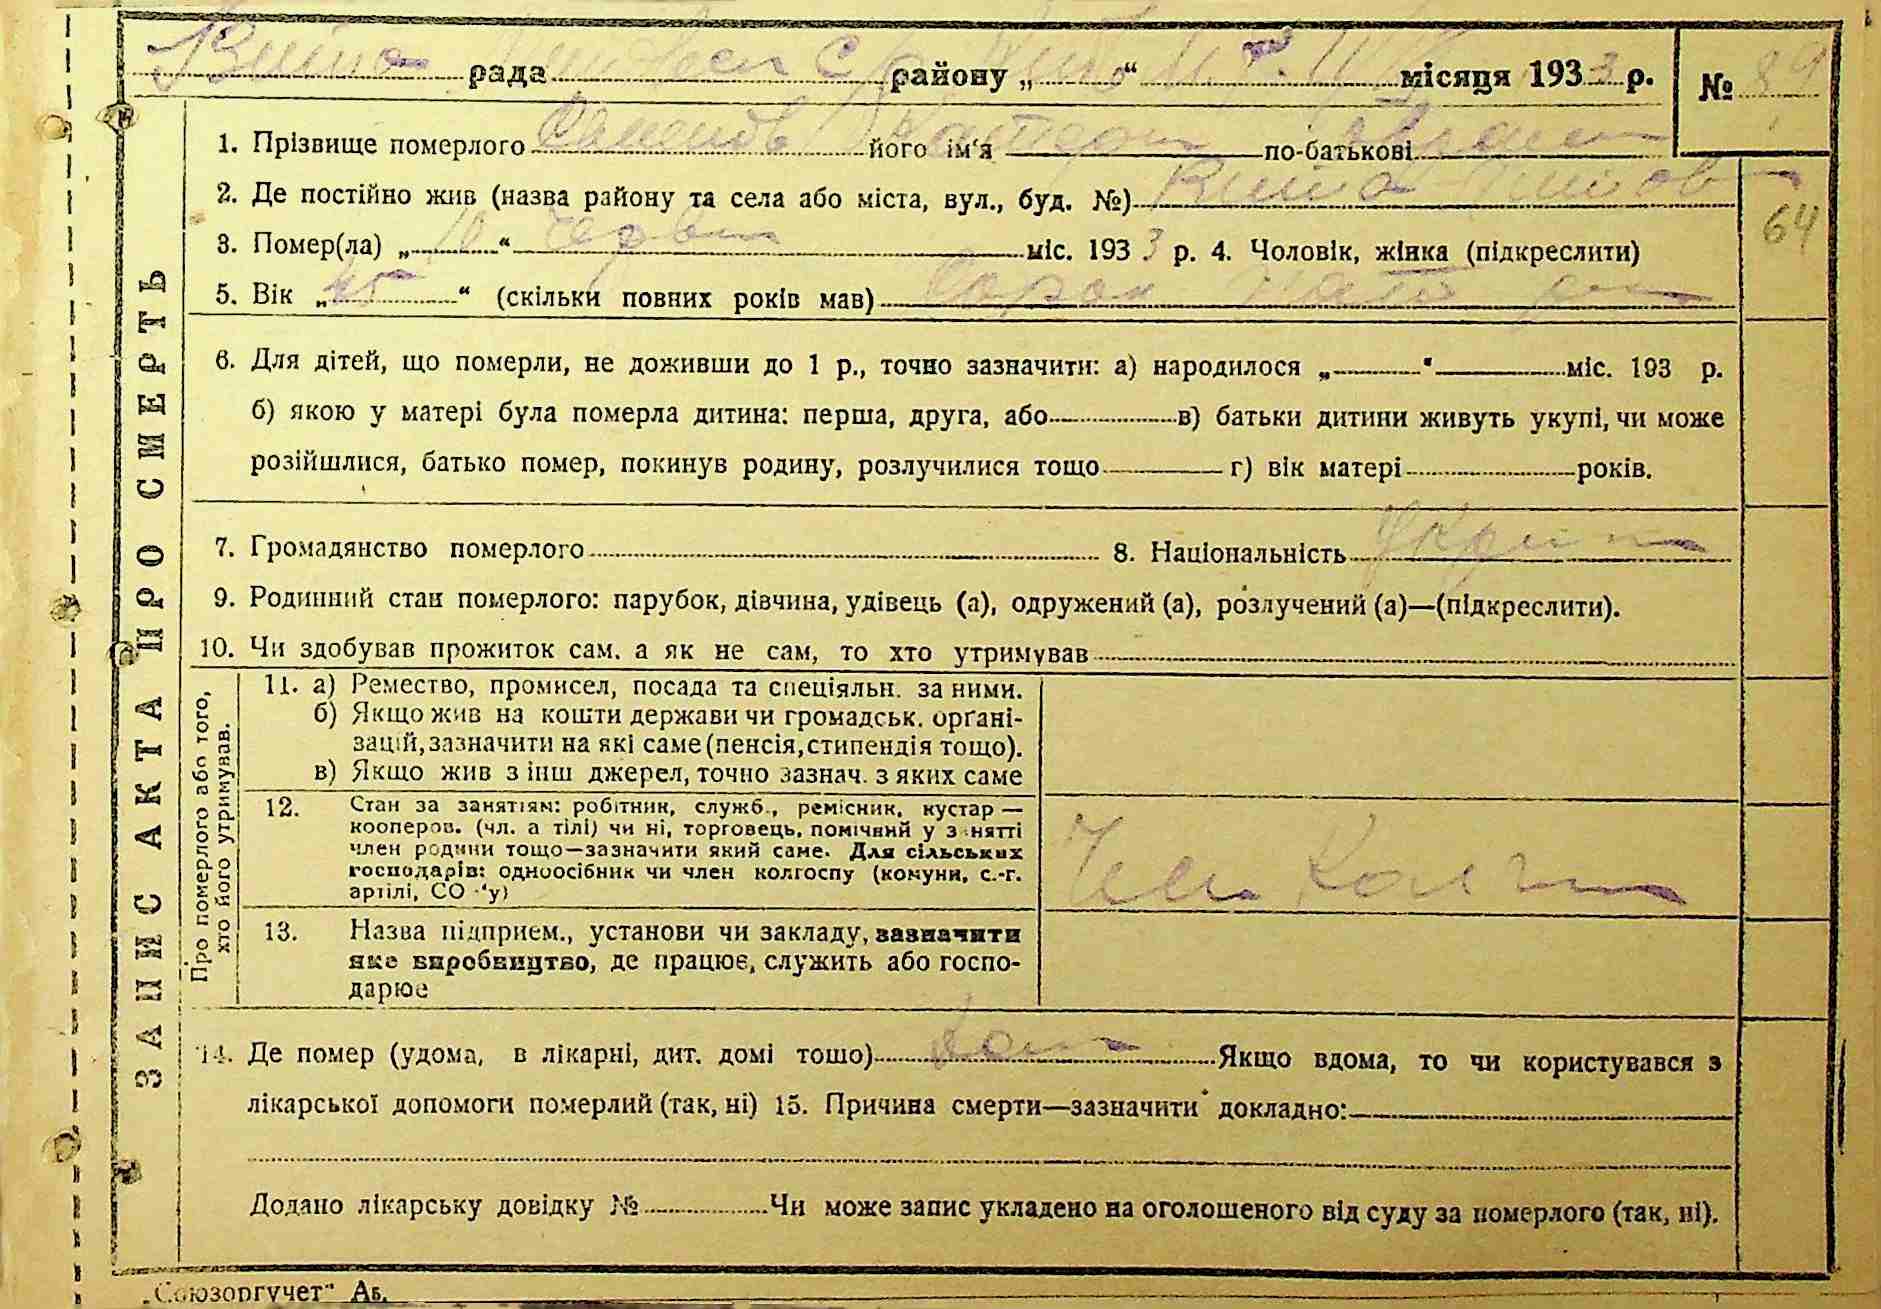 рада району „ “ місяця 1933 р. № 89
1. Прізвище померлого його ім'я по-батькові
2. Де постійно жив (назва району та села або міста, вул., буд. №)
64
3. Помер(ла) „10“ червн міс. 1933 р. 4. Чоловік, жінка (підкреслити)
5. Вік „45“ (скільки повних років мав) Сорок пять
6. Для дітей, що померли, не доживши до 1 р., точно зазначити: а) народилося „ “ міс. 193 р.
б) якою у матері була померла дитина: перша, друга, або в) батьки дитини живуть укупі, чи може
розійшлися, батько помер, покинув родину, розлучилися тощо г) вік матері років.
7. Громадянство померлого 8. Національність
9. Родинний стан померлого: парубок, дівчина, удівець (а), одружений (а), розлучений (а)—(підкреслити).
10. Чи здобував прожиток сам. а як не сам, то хто утримував
ЗАПИС АКТА ПРО СМЕРТЬ
Про померлого або того,
хто його утримував.
11. а) Ремество, промисел, посада та спеціяльн. за ними.
б) Якщо жив на кошти держави чи громадськ. орґані-
зацій, зазначити на які саме (пенсія, стипендія тощо).
в) Якщо жив з інш джерел, точно зазнач. з яких саме
12. Стан за занятіям: робітник, служб., ремісник, кустар —
кооперов. (чл. а тілі) чи ні, торговець, помічний у з нятті
член родини тощо—зазначити який саме. Для сільських
господарів: одноосібник чи член колгоспу (комуни, с.-г.
артілі, СО 'у)
Член Колг
13. Назва підприєм., установи чи закладу, зазначити
яке виробництво, де працює, служить або госпо-
дарює
14. Де помер (удома, в лікарні, дит. домі тощо) дома Якщо вдома, то чи користувався з
лікарської допомоги померлий (так, ні) 15. Причина смерти—зазначити докладно:
Додано лікарську довідку № Чи може запис укладено на оголошеного від суду за померлого (так, ні).
„Союзоргучет" Аб.